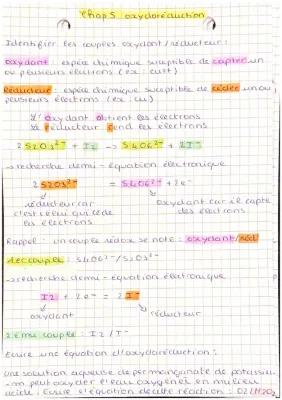 Chap 5 oxydoréduction
Identifier les couples oxydant/réducteur :
oxydant : espèce chimique suceptible de capter un
ou plusieurs électrons (ex : cu2+)
Réducteur : espèce chimique suceptible de céder un ou
plusieurs électrons (ex : cu)
oxydant obtient les électrons
réducteur rend les électrons
2 S2O3²⁻ + I2 → S4O6²⁻ + 2I⁻
→ recherche demi-équation électronique
2 S2O3²⁻ = S4O6²⁻ + 2e⁻
réducteur car oxydant car il capte
c'est celui qui cède des électrons
les électrons
Rappel : un couple rédox se note : oxydant/réd
1er couple : S4O6²⁻/S2O3²⁻
→ recherche demi-équation électronique
I2 + 2e⁻ = 2I⁻
oxydant réducteur
2ème couple : I2/I⁻
Ecrire une équation d'oxydoréduction :
une solution aqueuse de permanganate de potassiu
-m peut oxyder l'eau oxygénée en milieu
acide. Ecrire l'équation de cette réaction : O2/H2O2